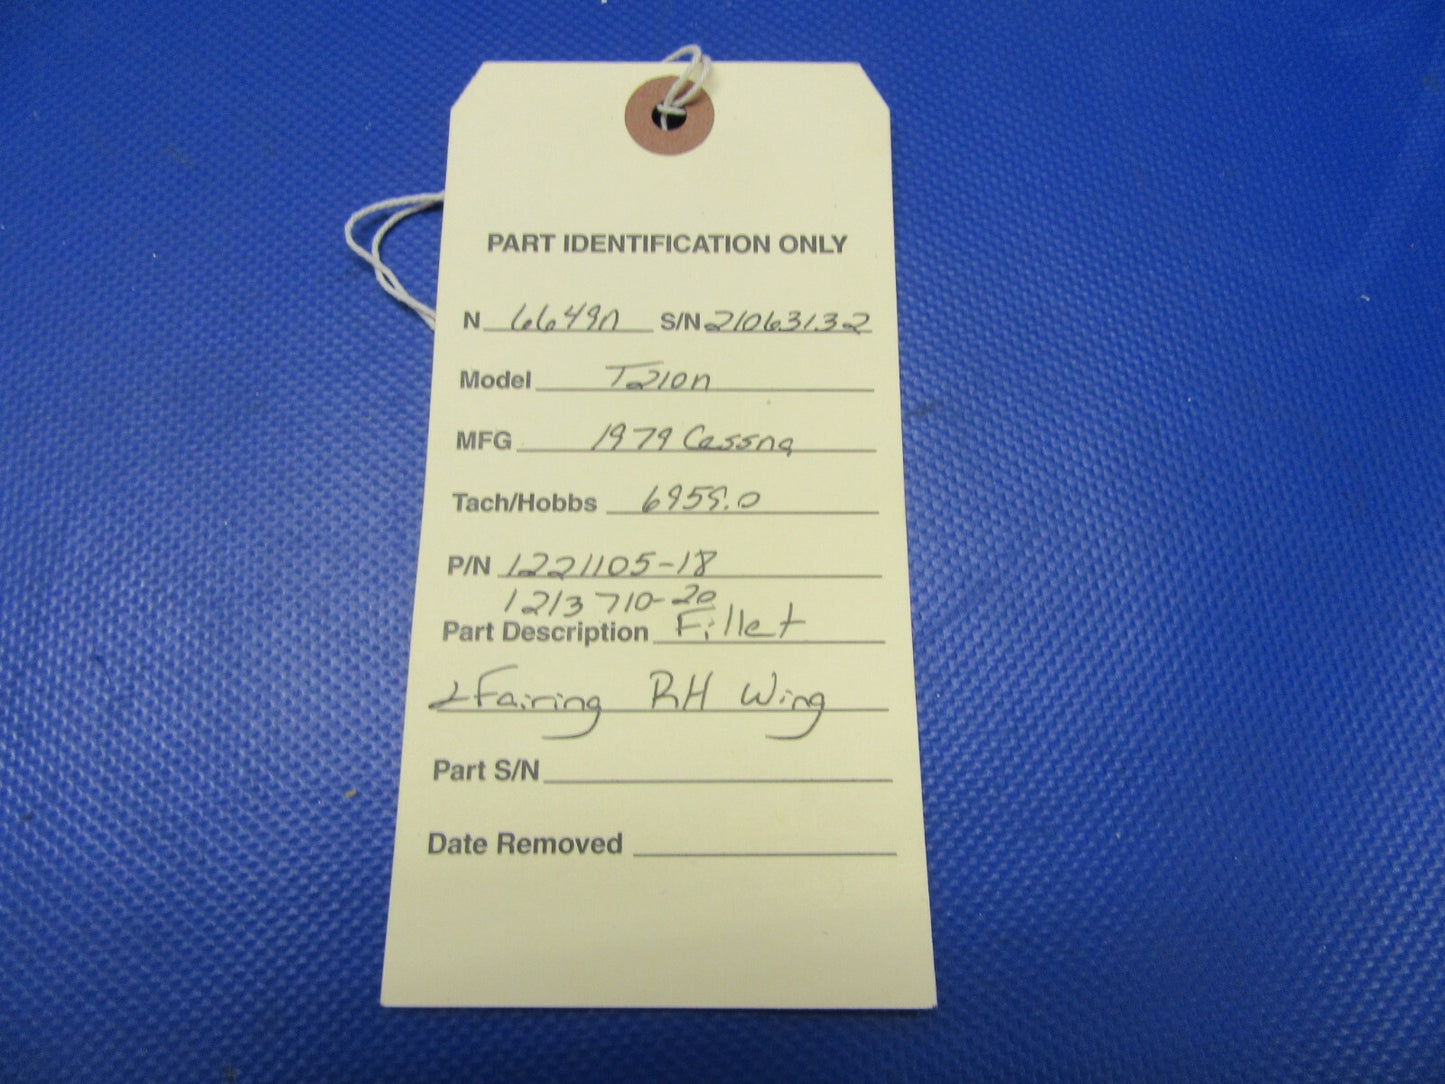 PART IDENTIFICATION ONLY
N 6649n S/N 21063132
Model T210n
MFG 1979 Cessna
Tach/Hobbs 6959.0
P/N 1221105-18
1213710-20
Part Description Fillet
& Fairing RH Wing
Part S/N
Date Removed